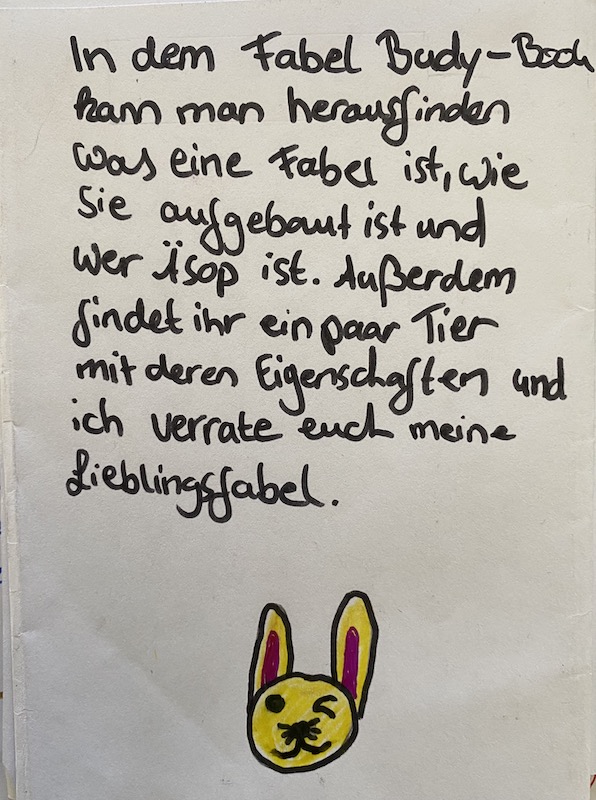 In dem Fabel Budy-Book
kann man herausfinden
was eine Fabel ist, wie
sie aufgebaut ist und
wer Äsop ist. Außerdem
findet ihr ein paar Tier
mit deren Eigenschaften und
ich verrate euch meine
Lieblingsfabel.